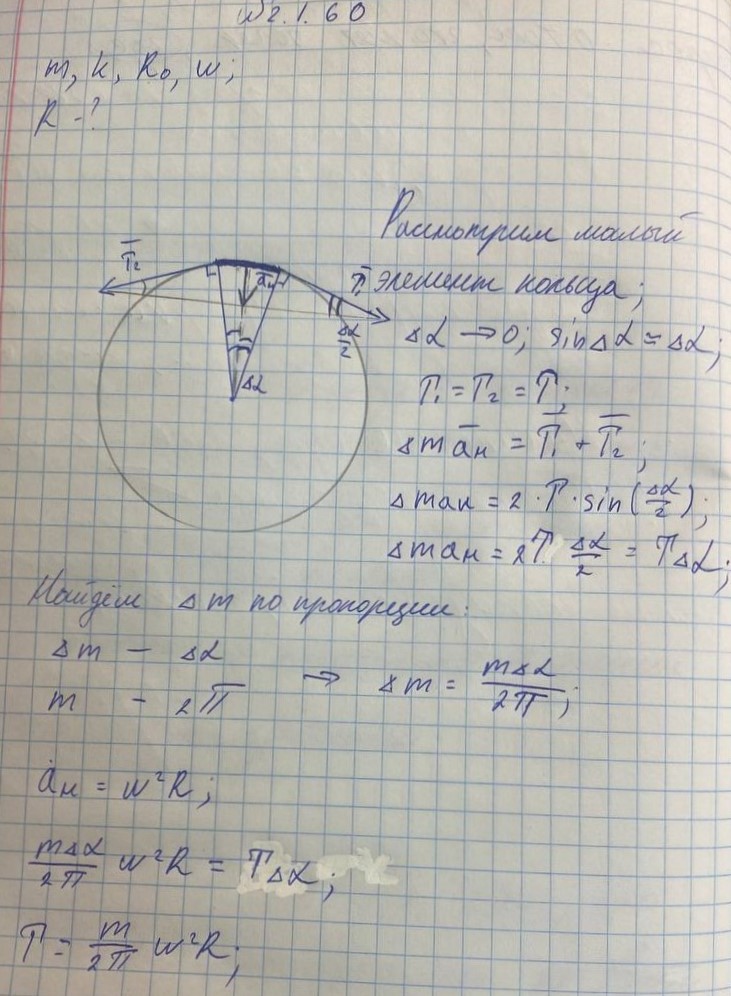 №2.1.60
m, k, R₀, w;
R - ?
Рассмотрим малый
элемент кольца;
Δα → 0; sinΔα ≈ Δα;
T₁ = T₂ = T;
Δm a̅н = T̅₁ + T̅₂;
Δmaн = 2·T·sin(Δα/2);
Δmaн = 2T Δα/2 = TΔα;
T̅₂
a̅н
T̅₁
Δα/2
Δα
Найдём Δm по пропорции:
Δm - Δα
m - 2π → Δm = mΔα/2π;
aн = w²R;
mΔα/2π w²R = TΔα;
T = m/2π w²R;